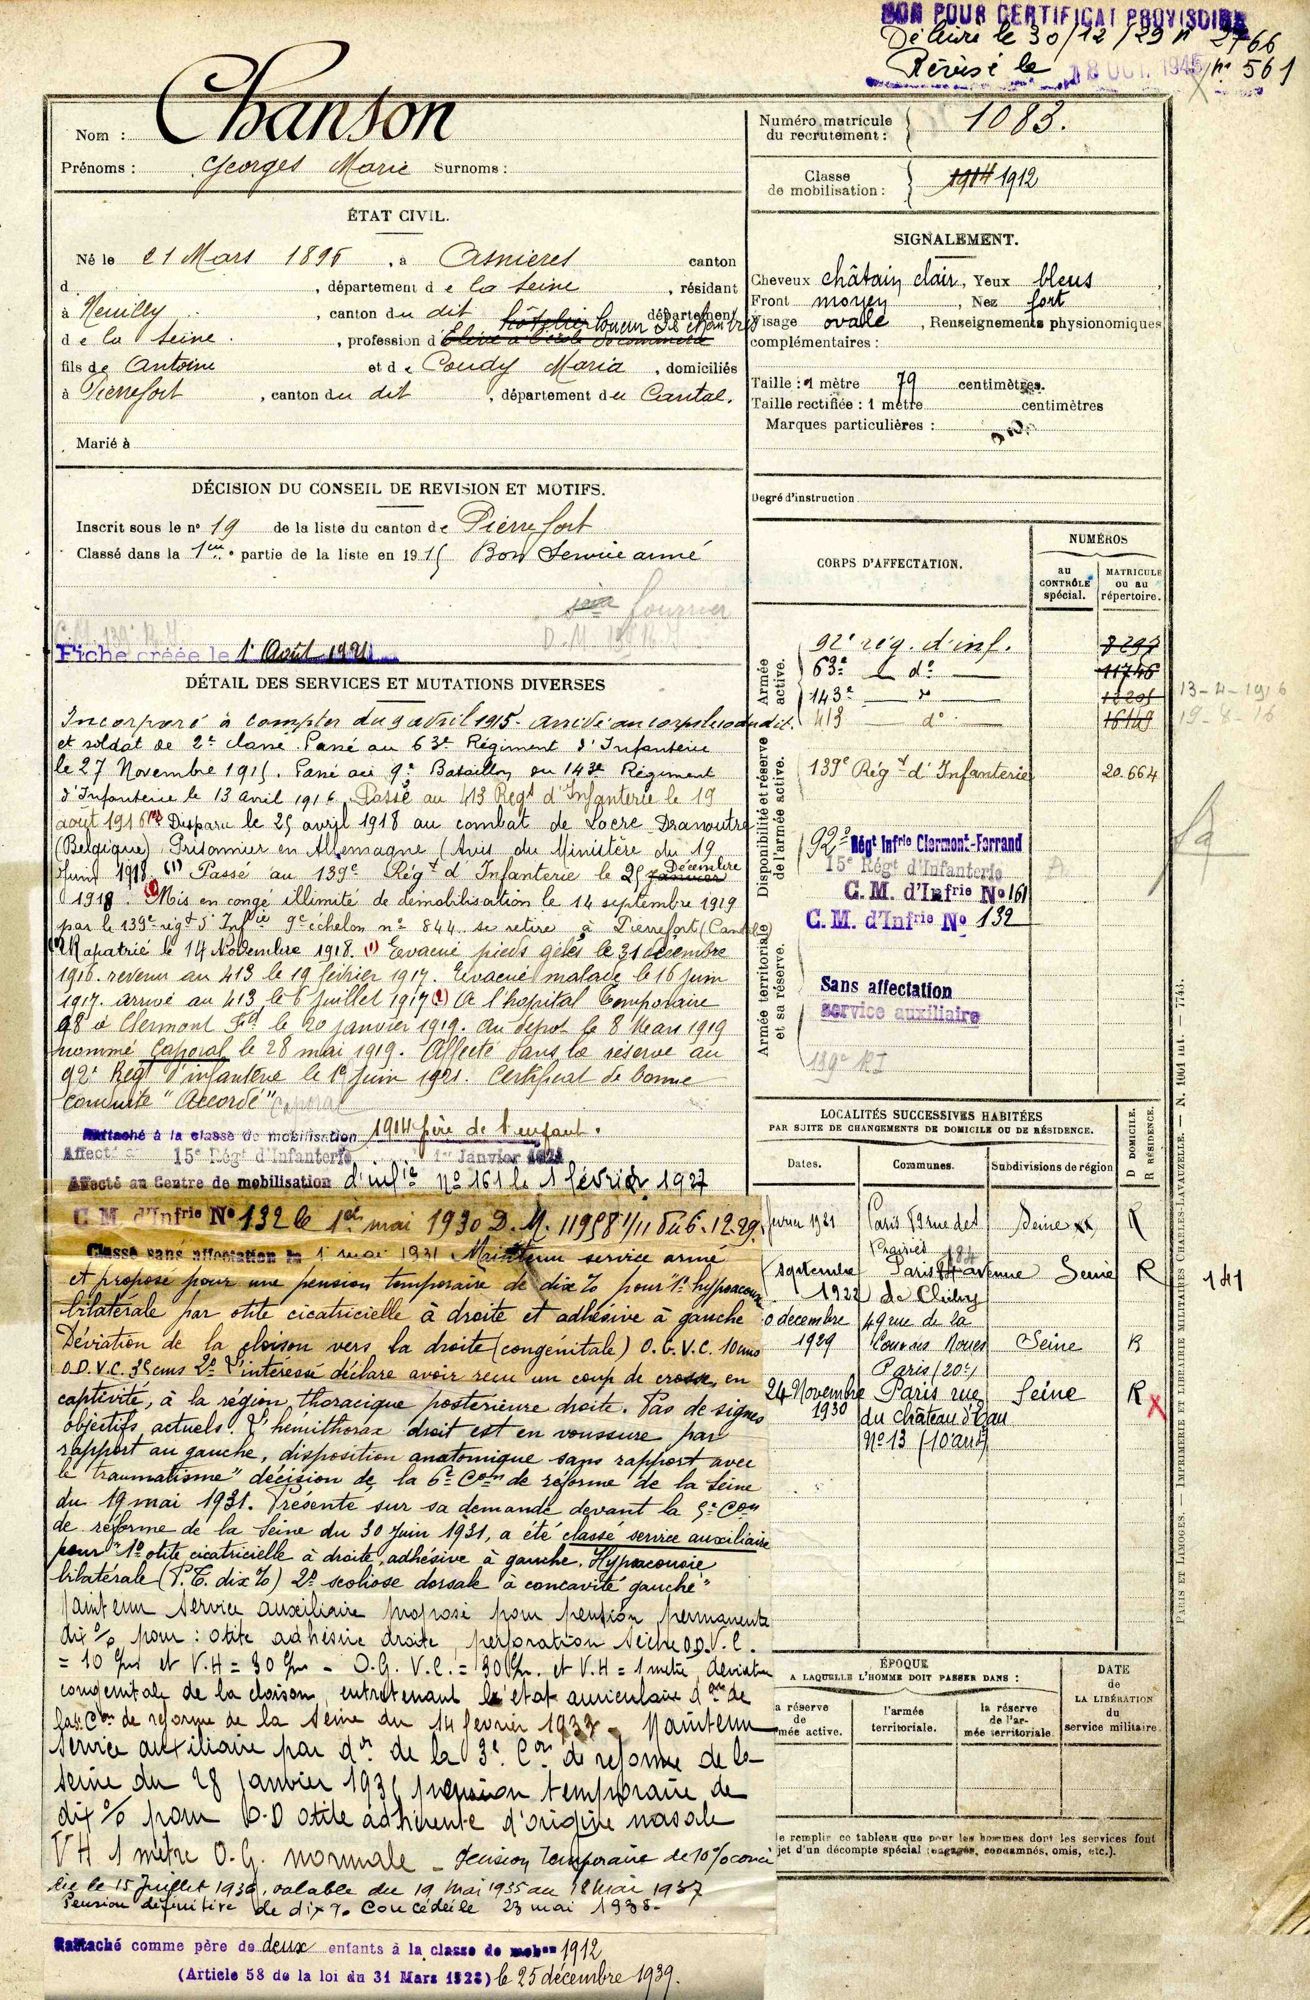 BON POUR CERTIFICAT PROVISOIRE
Délivré le 30/12/29 n° 2766
Révisé le 18 OCT. 1945 n° 561
Nom : Chanson
Prénoms : Georges Marie Surnoms :
Numéro matricule du recrutement : 1083.
Classe de mobilisation : 1914 1912
ÉTAT CIVIL.
Né le 21 Mars 1895, à Asnières canton
d , département de la Seine, résidant
à Neuilly, canton du dit département
de la Seine, profession d hôtelier loueur de chambres
Elève à l'école de commerce
fils de Antoine et de Coudy Maria, domiciliés
à Pierrefort, canton du dit, département du Cantal.
Marié à
SIGNALEMENT.
Cheveux châtain clair, Yeux bleus
Front moyen, Nez fort
Visage ovale, Renseignements physionomiques
complémentaires :
Taille : 1 mètre 79 centimètres.
Taille rectifiée : 1 mètre centimètres
Marques particulières :
Degré d'instruction
DÉCISION DU CONSEIL DE REVISION ET MOTIFS.
Inscrit sous le n° 19 de la liste du canton de Pierrefort
Classé dans la 1ere partie de la liste en 1915 Bon Service armé
Fiche créée le 1 Août 1921
CORPS D'AFFECTATION.
NUMÉROS
au CONTRÔLE spécial.
MATRICULE ou au répertoire.
Armée active.
92e rég. d'inf. 8297
63e d° 11746
143e d° 12205
413 d° 16149
13-4-1916
19-8-16
Disponibilité et réserve de l'armée active.
139e Régt d'Infanterie 20.664
92e Régt Infrie Clermont-Ferrand
15e Régt d'Infanterie
C. M. d'Infrie N° 161
C. M. d'Infrie N° 132
Armée territoriale et sa réserve.
Sans affectation
service auxiliaire
139e RI
DÉTAIL DES SERVICES ET MUTATIONS DIVERSES
Incorporé à compter du 9 avril 1915. arrivé au corps le dit.
et soldat de 2e classe. Passé au 63e Régiment d'Infanterie
le 27 Novembre 1915. Passé au 9e Bataillon du 143e Régiment
d'Infanterie le 13 avril 1916. Passé au 413 Regt d'Infanterie le 19
août 1916 Disparu le 25 avril 1918 au combat de Locre Dranoutre
(Belgique) Prisonnier en Allemagne (Avis du Ministère du 19
Juin 1918 (1) Passé au 139e Régt d'Infanterie le 25 janvier Décembre
1918. Mis en congé illimité de démobilisation le 14 septembre 1919
par le 139e régt d'Infie 9e échelon n° 844 se retire à Pierrefort (Cantal)
Rapatrié le 14 Novembre 1918. (1) Evacué pieds gelés le 31 décembre
1916. revenu au 413 le 19 février 1917. Evacué malade le 16 juin
1917. arrivé au 413 le 6 juillet 1917 A l'hopital Temporaire
98 à Clermont Fd le 20 janvier 1919. au dépot le 8 Mars 1919
nommé Caporal le 28 mai 1919. Affecté dans la réserve au
92e Regt d'infanterie le 1er Juin 1921. Certificat de bonne
conduite "Accordé" Caporal
Rattaché à la classe de mobilisation 1914 père de 1 enfant.
Affecté au 15e Régt d'Infanterie 1er Janvier
Affecté au Centre de mobilisation d'infie n° 161 le 1 février 1927
C. M. d'Infrie N° 132 le 1er mai 1930 D. M. 11958 1/11 du 6.12.29.
Classé sans affectation le 1 mai 1931 Maintenu service armé
et proposé pour une pension temporaire de dix % pour 1° hypoacousie
bilatérale par otite cicatricielle à droite et adhésive à gauche
Déviation de la cloison vers la droite (congénitale) O.G.V.C. 10 cms
O.D.V.C. 35 cms 2° L'intéressé déclare avoir reçu un coup de crosse, en
captivité, à la région thoracique postérieure droite. Pas de signes
objectifs actuels. L'hémithorax droit est en voussure par
rapport au gauche, disposition anatomique sans rapport avec
le traumatisme" décision de la 6e Con de réforme de la Seine
du 19 mai 1931. Présente sur sa demande devant la 5e Con
de réforme de la Seine du 30 Juin 1931, a été classé service auxiliaire
pour "1° otite cicatricielle à droite, adhésive à gauche. Hypoacousie
bilatérale (P.T. dix %) 2° scoliose dorsale à concavité gauche"
Maintenu service auxiliaire proposé pour pension permanente
dix % pour : otite adhésive droite, perforation sèche O.D.V.C.
= 10 cm et V.H = 30 cm - O.G. V.C. = 30 cm. et V.H = 1 mètre, déviation
congénitale de la cloison, entretenant l'état auriculaire don de
la Con de réforme de la Seine du 14 février 1933. Maintenu
Service auxiliaire par don de la 3e Con de réforme de la
Seine du 28 janvier 1936 pension temporaire de
dix % pour O.D otite adhérente d'origine nasale
VH 1 mètre O.G. normale - Pension temporaire de 10% concé
dée le 15 juillet 1936, valable du 19 mai 1935 au 18 mai 1937
Pension définitive de dix % Concédée le 23 mai 1938.
Rattaché comme père de deux enfants à la classe de mobon 1912
(Article 58 de la loi du 31 Mars 1928) le 25 décembre 1939.
LOCALITÉS SUCCESSIVES HABITÉES
PAR SUITE DE CHANGEMENTS DE DOMICILE OU DE RÉSIDENCE.
Dates. Communes. Subdivisions de région D DOMICILE. R RÉSIDENCE.
février 1921 Paris 79 rue des Prairies Seine R
septembre 1922 Paris 184 avenue de Clichy Seine R
décembre 1929 49 rue de la Paris (20e) Seine R
24 Novembre 1930 Paris rue du château d'Eau N° 13 (10e arrt) Seine R
141
ÉPOQUE
A LAQUELLE L'HOMME DOIT PASSER DANS :
la réserve de l'armée active.
l'armée territoriale.
la réserve de l'armée territoriale.
DATE de LA LIBÉRATION du service militaire.
Ne remplir ce tableau que pour les hommes dont les services font
l'objet d'un décompte spécial (engagés, condamnés, omis, etc.).
PARIS ET LIMOGES. — IMPRIMERIE ET LIBRAIRIE MILITAIRES CHARLES-LAVAUZELLE. — N. 1001 int. — 7743.